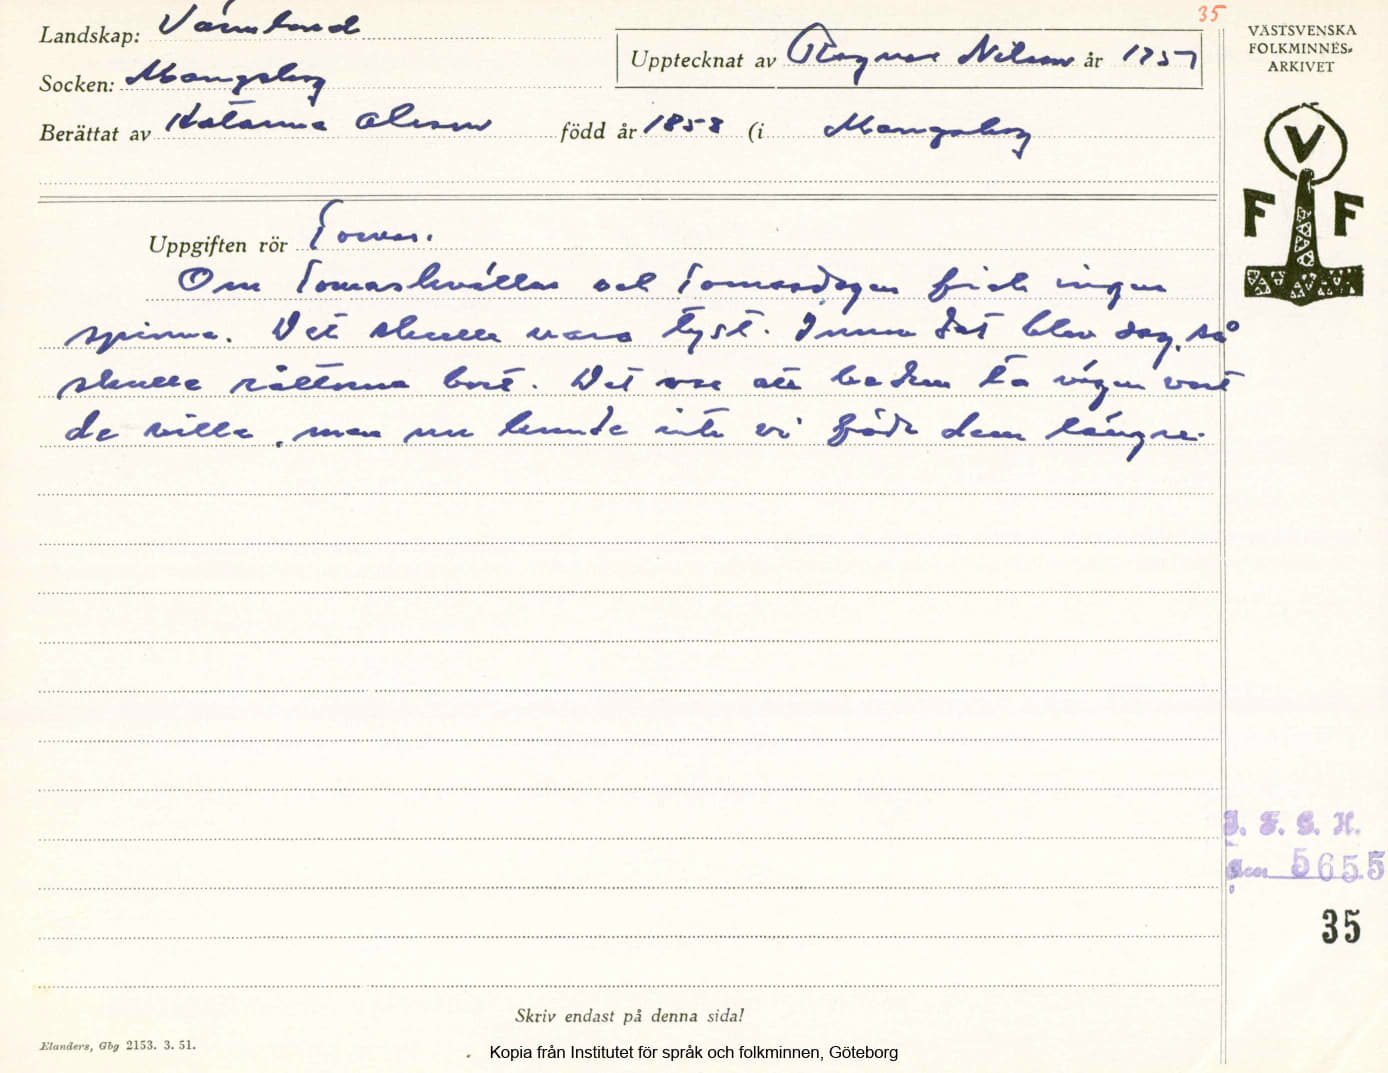 35
Landskap: Värmland
VÄSTSVENSKA
FOLKMINNES-
ARKIVET
Upptecknat av Ragnar Nilsson år 1957
Socken: Mangskog
Berättat av Katarina Olsson född år 1858 (i Mangskog
V
F F
Uppgiften rör Tomas.
Om Tomaskvällen och Tomasdagen fick ingen
spinna. Det skulle vara tyst. Innan det blev dag, så
skulle råttorna bort. Det var att be dem ta vägen vart
de ville, men nu kunde inte vi föda dem längre.
I. F. G. H.
5655
35
Skriv endast på denna sida!
Elanders, Gbg 2153. 3. 51.
Kopia från Institutet för språk och folkminnen, Göteborg